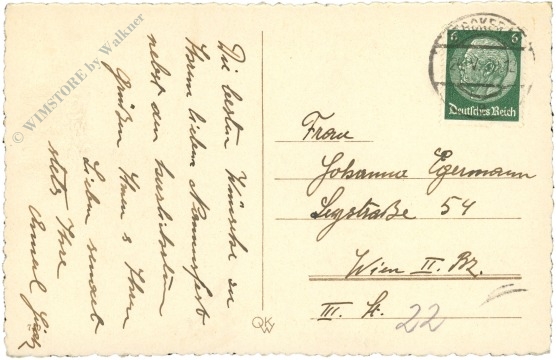 Die besten Wünsche zu
Ihrem lieben Namensfest
nebst den herzlichsten
Grüßen Ihnen & Ihren
Lieben sendet
stets Ihre
Frau
Johanna Egermann
Legstraße 54
Wien II. Bz.
III. St.
22
6
Deutsches Reich
QKW
© WIMSTORE by Walkner